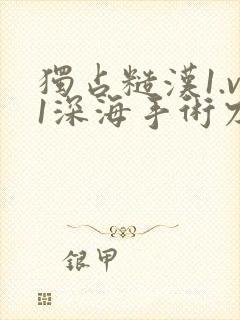 獨占糙漢1.v
1深海手術刀
銀甲